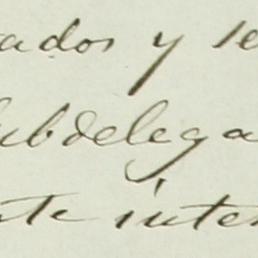 ados y se
Subdelega
ste inter